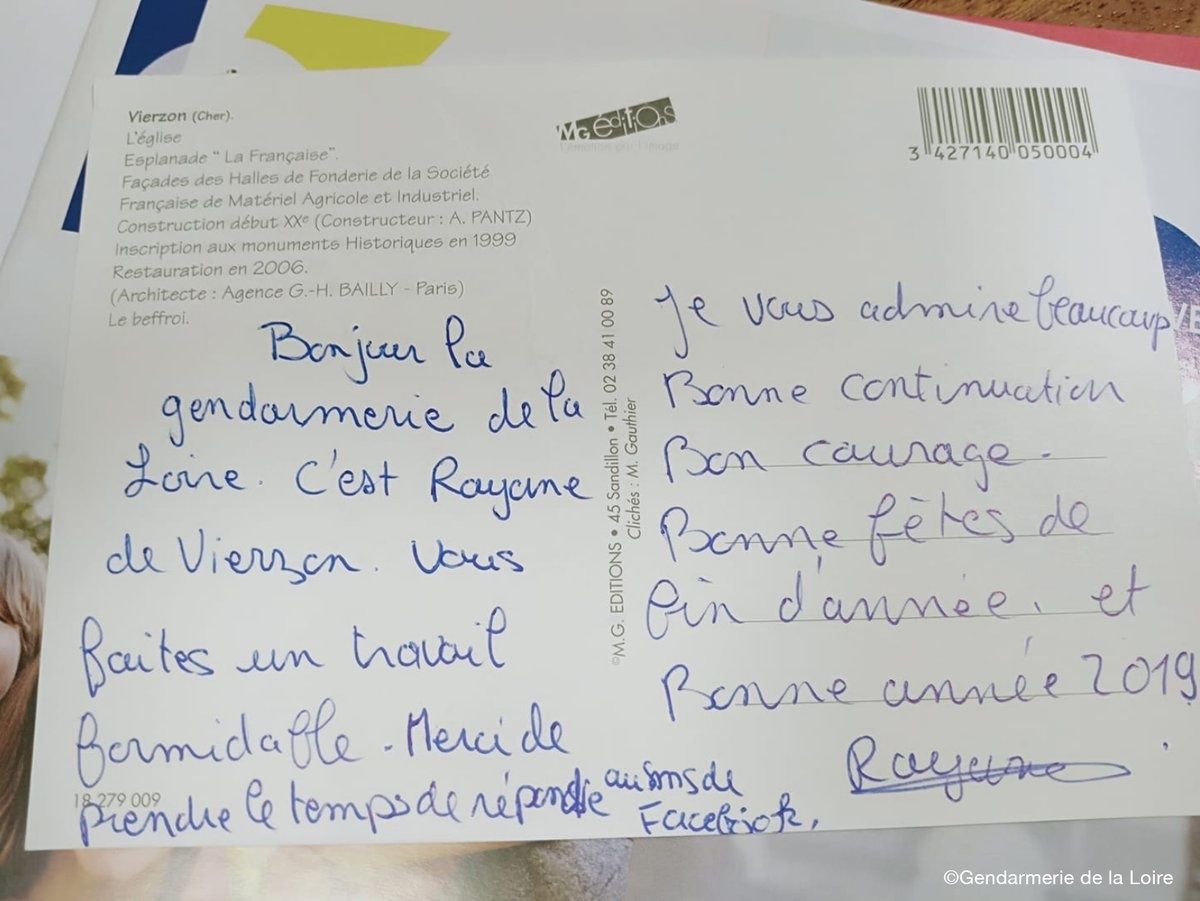 Vierzon (Cher).
L'église
Esplanade " La Française".
Façades des Halles de Fonderie de la Société
Française de Matériel Agricole et Industriel.
Construction début XXe (Constructeur : A. PANTZ)
Inscription aux monuments Historiques en 1999
Restauration en 2006.
(Architecte : Agence G.-H. BAILLY - Paris)
Le beffroi.
MG éditions
L'émotion par l'image
3 427140 050004
Bonjour la
gendarmerie de la
Loire. C'est Rayane
de Vierzon. Vous
faites un travail
formidable. Merci de
prendre le temps de répondre au sms de
Facebook,
18 279 009
©M.G. EDITIONS • 45 Sandillon • Tél. 02 38 41 00 89
Clichés : M. Gauthier
Je vous admire beaucoup
Bonne continuation
Bon courage.
Bonne fêtes de
fin d'année, et
Bonne année 2019
Rayane
©Gendarmerie de la Loire